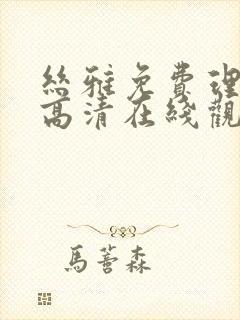 絲雅免費理
高清在綫觀
馬薈森